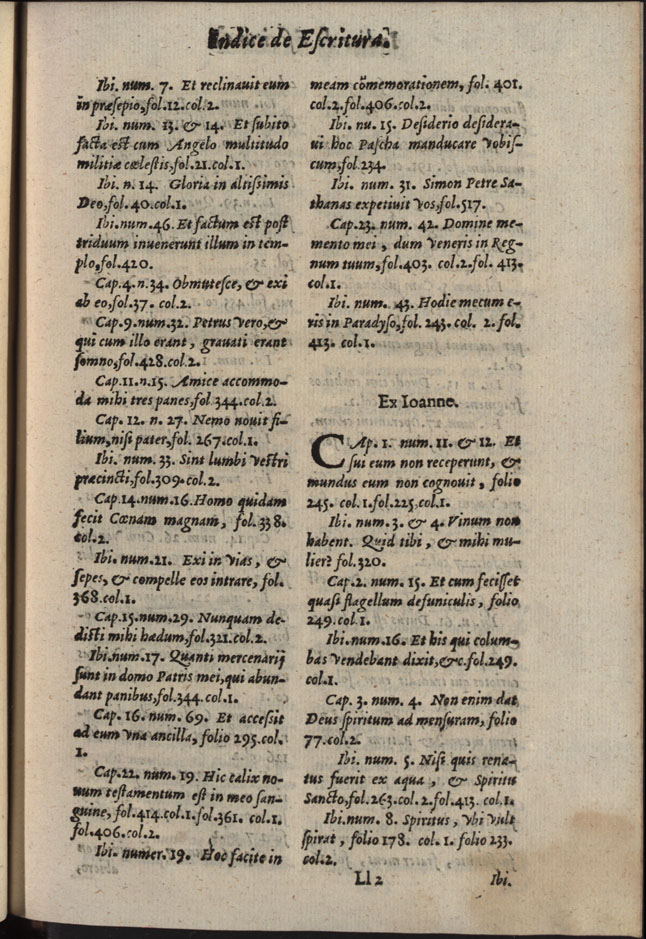 Indice de Eſcritura.
Ibi. num. 7. Et reclinauit eum
in præſepio,fol.12.col.2.
Ibi. num. 13. & 14. Et ſubito
facta eſt cum Angelo multitudo
militiæ cœleſtis,fol.21.col.1.
Ibi. n. 14. Gloria in altiſsimis
Deo,fol.40.col.1.
Ibi.num.46. Et factum eſt poſt
triduum inuenerunt illum in tem-
plo,fol.420.
Cap.4.n.34. Obmuteſce, & exi
ab eo,fol.37. col.2.
Cap.9.num.32. Petrus vero,&
qui cum illo erant, grauati erant
ſomno,fol.428.col.2.
Cap.11.n.15. Amice accommo-
da mihi tres panes,fol.344.col.2.
Cap. 12. n. 27. Nemo nouit fi-
lium,niſi pater,fol. 267.col.1.
Ibi. num. 33. Sint lumbi veſtri
præcincti,fol.309.col.2.
Cap.14.num.16.Homo quidam
fecit Cœnam magnam, fol.338.
col.2.
Ibi. num.21. Exi in vias, &
ſepes, & compelle eos intrare, fol.
368.col.1.
Cap.15.num.29. Nunquam de-
diſti mihi hædum,fol.321.col.2.
Ibi.num.17. Quanti mercenarij
ſunt in domo Patris mei,qui abun-
dant panibus,fol.344.col.1.
Cap. 16. num. 69. Et acceſsit
ad eum vna ancilla, folio 295.col.
1.
Cap.22. num. 19. Hic calix no-
uum teſtamentum eſt in meo ſan-
guine, fol.414.col.1.fol.361. col.1.
fol.406.col.2.
Ibi. numer. 19. Hoc facite in
meam cõmemorationem, fol. 401.
col.2.fol.406.col.2.
Ibi. nu. 15. Deſiderio deſidera-
ui hoc Paſcha manducare vobiſ-
cum,fol.234.
Ibi. num. 31. Simon Petre Sa-
thanas expetiuit vos,fol.517.
Cap.23. num. 42. Domine me-
mento mei, dum veneris in Reg-
num tuum,fol.403. col.2.fol. 413.
col.1.
Ibi. num. 43. Hodie mecum e-
ris in Paradyſo,fol. 243. col. 2. fol.
413. col.1.
Ex Ioanne.
CAp. 1. num. 11. & 12. Et
ſui eum non receperunt, &
mundus eum non cognouit, folio
245. col.1.fol.225.col.1.
Ibi. num.3. & 4. Vinum non
habent. Quid tibi, & mihi mu-
lier? fol.320.
Cap.2. num. 15. Et cum feciſſet
quaſi flagellum defuniculis, folio
249.col.1.
Ibi.num.16. Et his qui colum-
bas vendebant dixit,&c.fol.249.
col.1.
Cap. 3. num. 4. Non enim dat
Deus ſpiritum ad menſuram, folio
77.col.2.
Ibi. num. 5. Niſi quis rena-
tus fuerit ex aqua, & Spiritu
Sancto,fol.263.col.2.fol.413. col.1.
Ibi.num. 8. Spiritus, vbi vult
ſpirat, folio 178. col. 1. folio 233.
col.2.
Ll 2
Ibi.